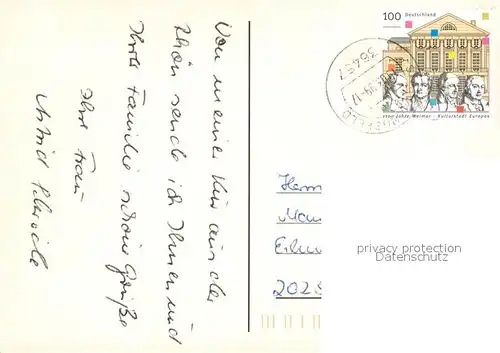 Von meiner Kur aus der
Rhön sende ich Ihnen und
Ihrer Familie schöne Grüße
Ihre Frau
Astrid
100 Deutschland
Jahre Weimar - Kulturstadt Europas
36457
Herrn
Erlen
2028
privacy protection
Datenschutz